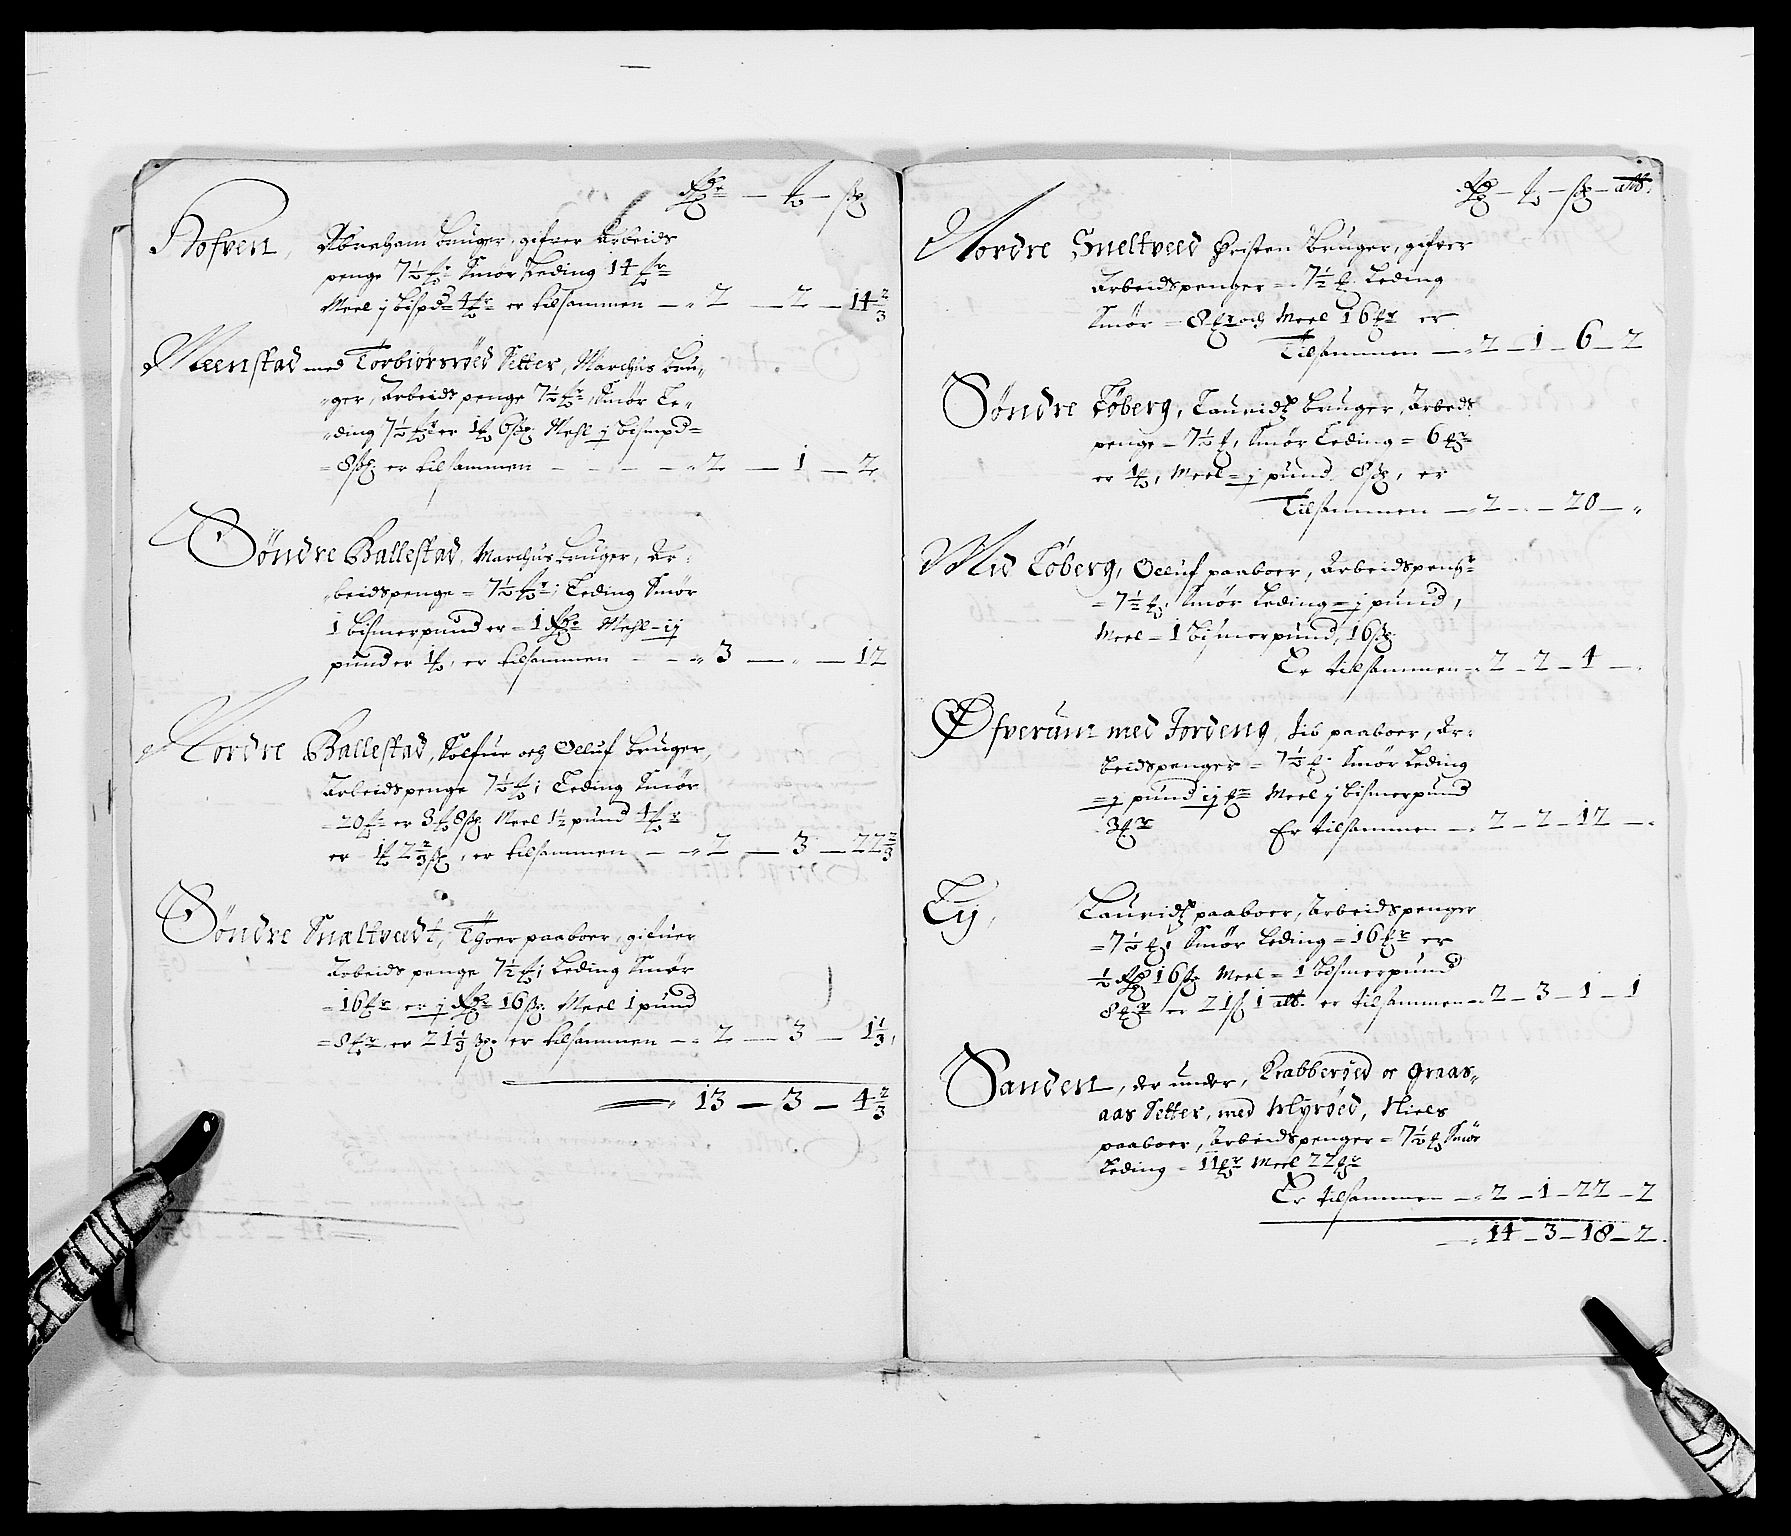 Rdr — ℔ — sk
Hofven, Abraham bruger, gifver Arbeids
penge 7½ ℔; Smør Leding 14 ℔r
Meel j bispd 4 ℔r er tilsammen — 2 — 2 — 14 2/3
Meenstad med Torbiørsrød Setter, Marchus bru-
ger, Arbeids penge 7½ ℔r, Smør Le-
ding 7½ ℔r er 1 ℔ 6 sk Mehl j bismpd
8 sk er tilsammen — 2 — 1 — 2
Søndre Ballestad, Marchus bruger, Ar-
beidspenge = 7½ ℔r; Leding Smør
1 bismerpund er = 1 Rdr Mehl = ij
pund er 1 ℔, er tilsammen — 3 — " — 12
Nordre Ballestad, Rolfue och Olluf bruger,
Arbeidspenge 7½ ℔; Leding Smør
= 20 ℔r er 3 ℔ 8 sk Meel 1½ pund 4 ℔r
er 1 ℔ 2 2/3 sk, er tilsammen — 2 — 3 — 22 2/3
Søndre Snæltvedt, Thoer paaboer, gifuer
Arbeids penge 7½ ℔; Leding Smør
= 16 ℔r er j Rdr 16 sk Meel 1 pund
= 8 ℔r er 21 1/3 sk er tilsammen — 2 — 3 — 1 1/3
13 — 3 — 4 2/3
Rd — ℔ — sk — alb.
Nordre Sneltveed Christen bruger, gifver
Arbeidspenger = 7½ ℔. Leding
Smør = 8 ℔r och Meel 16 ℔r er
Tilsammen — 2 — 1 — 6 — 2
Søndre Foberg, Lauridz bruger, Arbeds
penge = 7½ ℔, Smør Leding = 6 ℔r
er 1 ℔, Meel = j pund 8 sk, er
Tilsammen — 2 — " — 20 — "
Mid Foberg, Olluf paaboer, Arbeidspengr
= 7½ ℔; Smør Leding = j pund,
Meel = 1 bismerpund, 16 sk
Er tilsammen — 2 — 2 — 4 — "
Øfverum med Jordeng, Jib paaboer, Ar-
beidspenger = 7½ ℔; Smør Leding
= j pund ij ℔r Meel j bismerpund
3 ℔r Er tilsammen — 2 — 2 — 12 — "
Ly, Lauridz paaboer, Arbeidspenger
= 7½ ℔; Smør Leding = 16 ℔r er
½ Rd 16 sk Meel = 1 bismerpund
8 ℔r er 21 sk 1 alb. er tilsammen — 2 — 3 — 1 — 1
Sanden, der under, Krabberød oc Graas-
aas Setter, med Myrød, Niels
paaboer, Arbeidspenger = 7½ ℔ Smør
Leding = 11 ℔r Meel 22 ℔r
Er tilsammen — 2 — 1 — 22 — 2
14 — 3 — 18 — 2